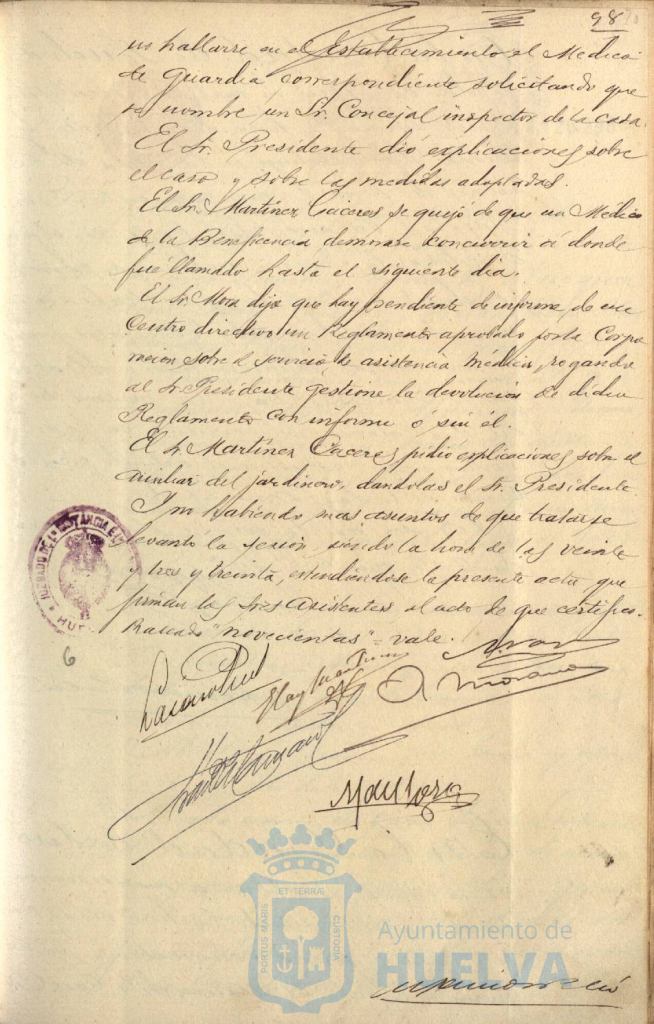 98
no hallarse en el Establecimiento el Medico
de Guardia correspondiente solicitando que
se nombre un Sr. Concejal inspector de la casa.
El Sr. Presidente dió explicaciones sobre
el caso y sobre las medidas adoptadas.
El Sr. Martinez Caceres se quejó de que un Medico
de la Beneficencia demorase concurrir á donde
fué llamado hasta el siguiente dia.
El Sr. Mora dijo que hay pendiente de informe de ese
Centro directivo un Reglamento aprobado por la Corpo
ración sobre el servicio de asistencia médica, rogando
al Sr. Presidente gestione la devolución de dicho
Reglamento con informe ó sin él.
El Sr. Martinez Caceres pidió explicaciones sobre el
auxiliar del jardinero, dandolas el Sr. Presidente.
Y no habiendo mas asuntos de que tratar se
levantó la sesión, siendo la hora de las veinte
y tres y treinta, estendiendose la presente acta que
firman los Sres Asistentes al acto de que certifico.
Raspado "novecientas" = vale.
6
JUZGADO DE 1ª INSTANCIA E
HUE
PORTUS MARIS
ET TERRÆ
CUSTODIA
Ayuntamiento de
HUELVA